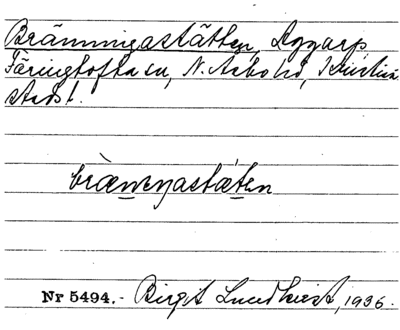 Bränningastätten, Aggarp
Färingtofta sn, N. Åsbo hd, Kristian-
stads l.
bràeneŋastǽten
Nr 5494.- Birgit Lundkvist, 1936.